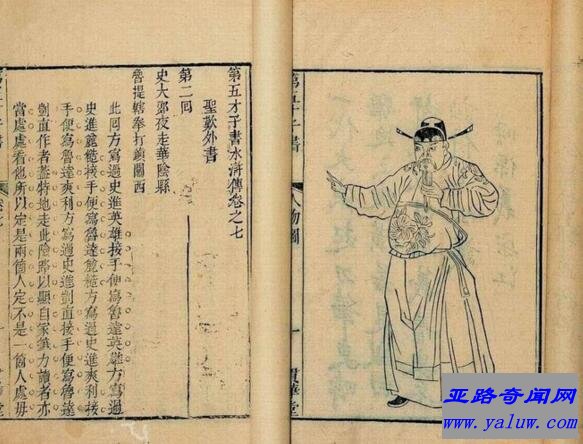 第五才子書
人物圖
一
貫華堂
第五才子書水滸傳卷之七
聖歎外書
第二囘
史大郎夜走華陰縣
魯提轄拳打鎮關西
此囘方寫過史進英雄接手便寫魯達英雄方寫過
史進麄糙接手便寫魯達麄糙方寫過史進爽利接
手便寫魯達爽利方寫過史進剴直接手便寫魯達
剴直作者蓋特地走此險路以顯自家筆力讀者亦
當處處看他所以定是兩箇人定不是一箇人處毋
亚路奇闻网
www.yaluw.com